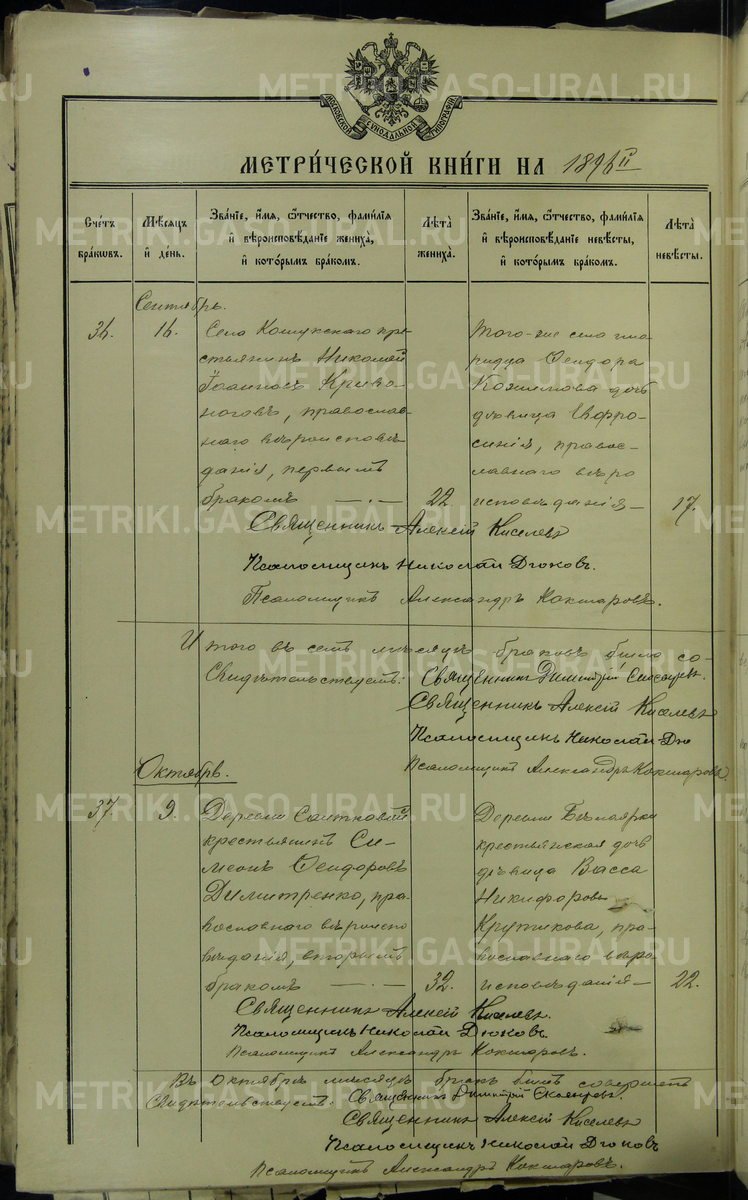 МОСКОВСКОЙ СѴНОДАЛЬНОЙ ТИПОГРАФІИ
МЕТРИ́ЧЕСКОЙ КНИ́ГИ НА 1896
Сче́тъ бра́ковъ.
Мѣ́сяцъ и҆ де́нь.
Зва́нїе, и҆́мя, ѻ҆́тчество, фами́лїя и҆ вѣроисповѣ́данїе жениха̀, и҆ кото́рымъ бра́комъ.
Лѣ́та жениха̀.
Зва́нїе, и҆́мя, ѻ҆́тчество, фами́лїя и҆ вѣроисповѣ́данїе невѣ́сты, и҆ кото́рымъ бра́комъ.
Лѣ́та невѣ́сты.
Сентябрь.
36. 16.
Села Кошукскаго кре-
стьянинъ Николай
Іоанновъ Криво-
ноговъ, православ-
наго вѣроисповѣ-
данія, первымъ
бракомъ — 22
Того-же села
Ѳеодора
дочь
дѣвица Евфро-
синія, правос-
лавнаго вѣро
исповѣданія — 17.
Священникъ Алексій Киселевъ
Псаломщикъ Николай Дюковъ.
Псаломщикъ Александръ Кокшаровъ.
Итого въ семъ мѣсяцѣ браковъ было со-
Свидѣтельствуетъ: Священникъ Димитрій
Священникъ Алексій Киселевъ
Псаломщикъ Николай Дю
Псаломщикъ Александръ Кокшаровъ
Октябрь.
37. 9.
Деревни Саитковой
крестьянинъ Си-
меонъ Ѳеодоровъ
Димитренко, пра-
вославнаго вѣроиспо
вѣданія, вторымъ
бракомъ — 32.
Деревни Бѣлоярки
крестьянская дочь
дѣвица Васса
Никифорова
Крутикова, пра-
вославнаго вѣро
исповѣданія — 22.
Священникъ Алексій Киселевъ.
Псаломщикъ Николай Дюковъ.
Псаломщикъ Александръ Кокшаровъ.
Въ Октябрѣ мѣсяцѣ бракъ былъ совершенъ
Свидѣтельствуетъ: Священникъ Димитрій
Священникъ Алексій Киселевъ
Псаломщикъ Николай Дюковъ
Псаломщикъ Александръ Кокшаровъ.
METRIKI.GASO-URAL.RU